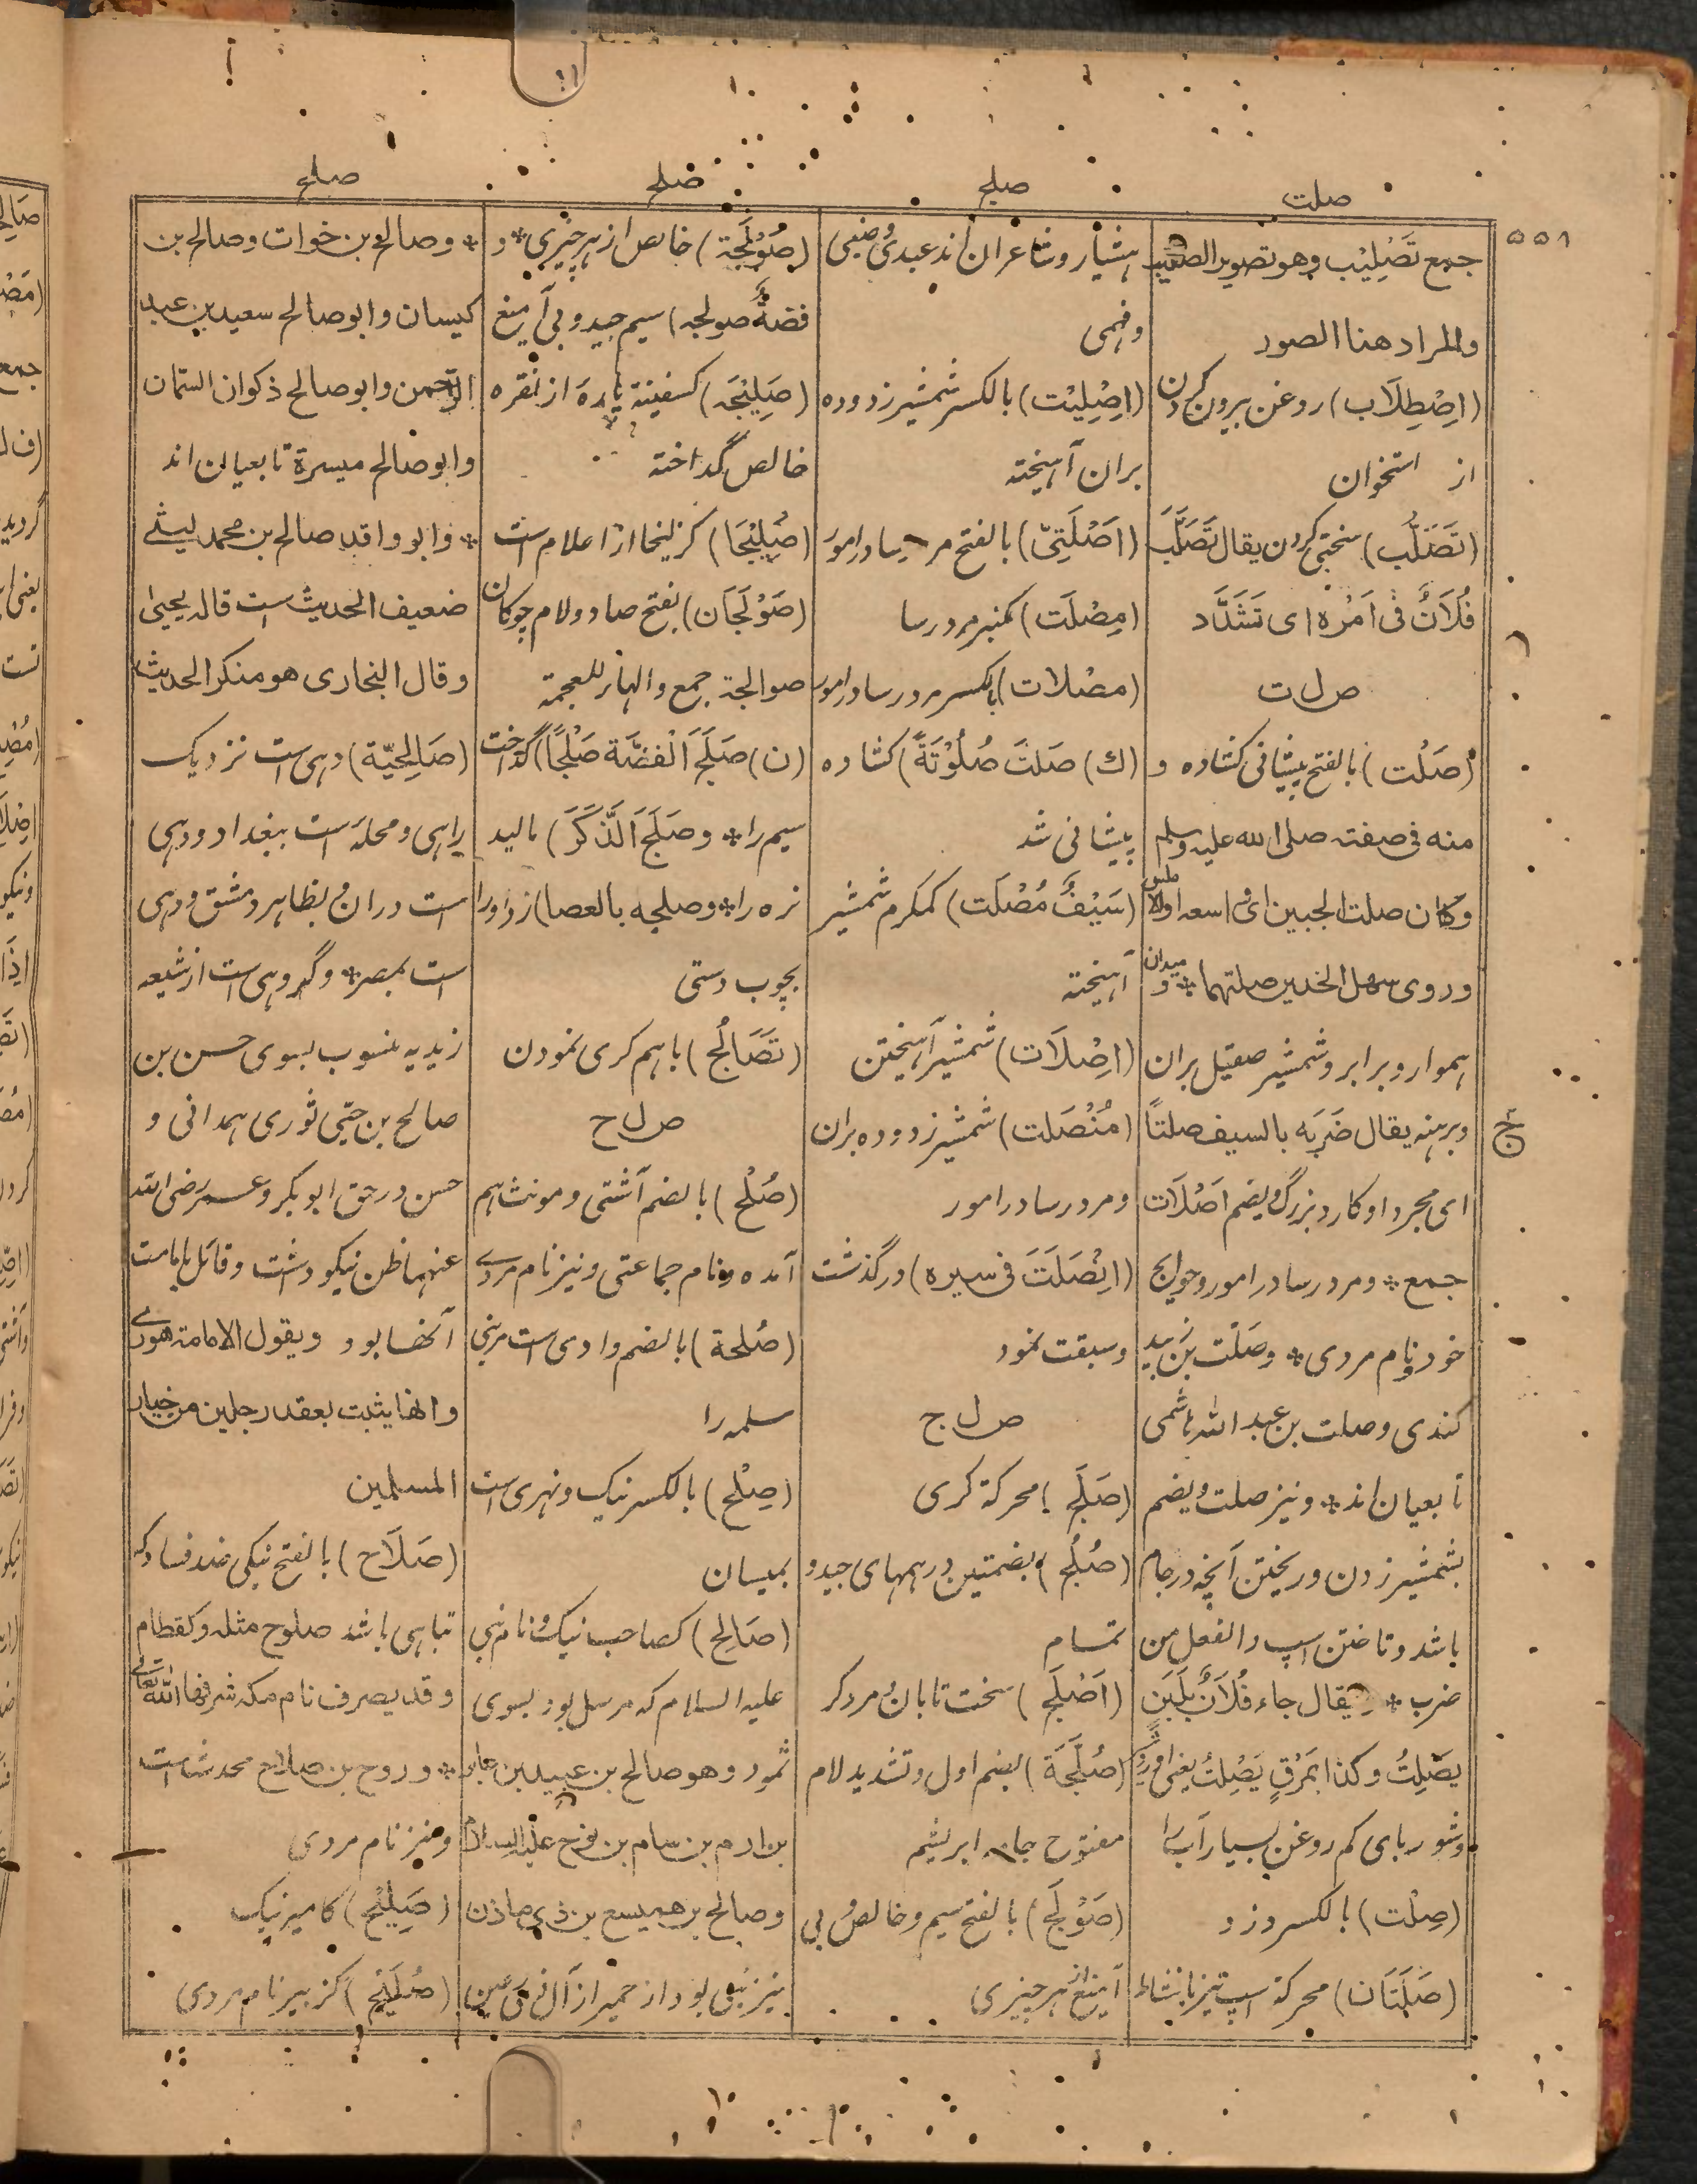 صلت
صلج
صلج
صلح
۵۵۱
جمع تَصْلِیْب وهو تصویر الصلیب
والمراد هنا الصور
(اِصْطِلَاب) روغن بیرون کردن
از استخوان
(تَصَلُّب) سختی کردن یقال تَصَلَّبَ
فُلَانٌ فی اَمْرِه ای تَشَدَّد
ص ل ت
(صَلْت) بالفتح پیشانی کشاده و
منه فی صفته صلی الله علیه وسلم
وکان صلت الجبین ای اسعه اوالا
وروی سهل الخدین صلتهما * و
هموار و برابر و شمشیر صقیل بران
وبرهنه یقال ضَرَبَه بالسیف صلتًا
ای مجردا و کارد بزرگ ویضم اَصْلَات
جمع * و مرد رسا در امور و حوایج
خود و نام مردی * وصَلْت بن زبید
کندی وصلت بن عبد الله هاشمی
تابعیان اند * ونیز صلت ویضم
بشمشیر زدن و ریختن آنچه در جام
باشد و تاختن اسپ والفعل من
ضرب * یقال جاء فُلَانٌ بِلَبَنٍ
یَصْلِتُ وکذا بمَرَقٍ یَصْلِتُ یعنی
وشوربای کم روغن بسیار آب
(صِلْت) بالکسر دزد
(صَلَتَان) محرکة اسپ تیز بانشاط
هشیار و شاعران اند عبدی وضبی
وفهمی
(اِصْلِیْت) بالکسر شمشیر زدوده
بران آهیخته
(اَصْلَتِیّ) بالفتح مرد رسا در امور
(مِصْلَت) کمنبر مرد رسا
(مصْلات) بالکسر مرد رسا در امور
(ك) صَلتَ صُلُوْتَةً) کشاده
پیشانی شد
(سَیْفٌ مُصْلَت) کمکرم شمشیر
آهیخته
(اِصْلَات) شمشیر آهیختن
(مُنْصَلت) شمشیر زدوده بران
ومرد رسا در امور
(اِنْصَلَتَ فی سیره) در گذشت
وسبقت نمود
ص ل ج
(صَلَج) محرکة کری
(صُلُج) بضمتین درهمهای جید و
تمام
(اَصْلَج) سخت تابان و مرد کر
(صُلَّجَة) بضم اول و تشدید لام
مفتوح جامه ابریشم
(صَوْلَج) بالفتح سیم و خالص بی
آمیغ از هر چیزی
(صُوْلَجَة) خالص از هر چیزی * و
فضةٌ صولجه) سیم جید و بی آمیغ
(صَلِیْجَه) کسفینة پاره از نقره
خالص گداخته
(صُلِیْجَا) کزلیخا از اعلام است
(صَوْلَجَان) بفتح صاد و لام چوکان
صوالجة جمع والهاء للعجمة
(ن) صَلَجَ الْفضَّة صَلْجًا) گداخت
سیم را * وصَلَجَ الذَّکَرَ) مالید
نره را * وصلجه بالعصا) زد اورا
بچوب دستی
(تَصَالُج) باهم کری نمودن
ص ل ح
(صُلْح) بالضم آشتی و مونث هم
آمده و نام جماعتی و نیز نام مردے
(صُلحة) بالضم وادی است مر بنی
سلمه را
(صِلْح) بالکسر نیک و نهری است
بمیسان
(صَالِح) کصاحب نیک و نام نبی
علیه السلام که مرسل بود بسوی
ثمود وهو صالح بن عبید بن عابر
بن ارم بن سام بن نوح علیه السلام
وصالح بن همیسع بن ذی ماذن
نیز نبی بود از حمیر از آل ذی رعین
* وصالح بن خوات وصالح بن
کیسان وابو صالح سعید بن عبد
الرحمن وابو صالح ذکوان السمّان
وابو صالح میسرة تابعیان اند
* وابو واقد صالح بن محمد لیثے
ضعیف الحدیث است قاله یحیی
وقال البخاری هو منکر الحدیث
(صَالِحِیّة) دهی است نزدیک
راهی و محله است ببغداد و دهی
است دران و بظاهر دمشق و دهی
است بمصر * وگروهی است از شیعه
زیدیه منسوب بسوی حسن بن
صالح بن حیی ثوری همدانی و
حسن در حق ابو بکر و عمر رضی الله
عنهما ظن نیکو داشت و قائل بامامت
آنها بود ویقول الامامة شورے
وانها یثبت بعقد رجلین من خیار
المسلمین
(صَلَاح) بالفتح نیکی ضد فساد که
تباهی باشد صلوح مثله وکقطام
وقد یصرف نام مکه شرفها الله تعالی
* وروح بن صلاح محدث است
ونیز نام مردی
(صَلِیْح) کامیر نیک
(صُلَیْح) کزبیر نام مردی